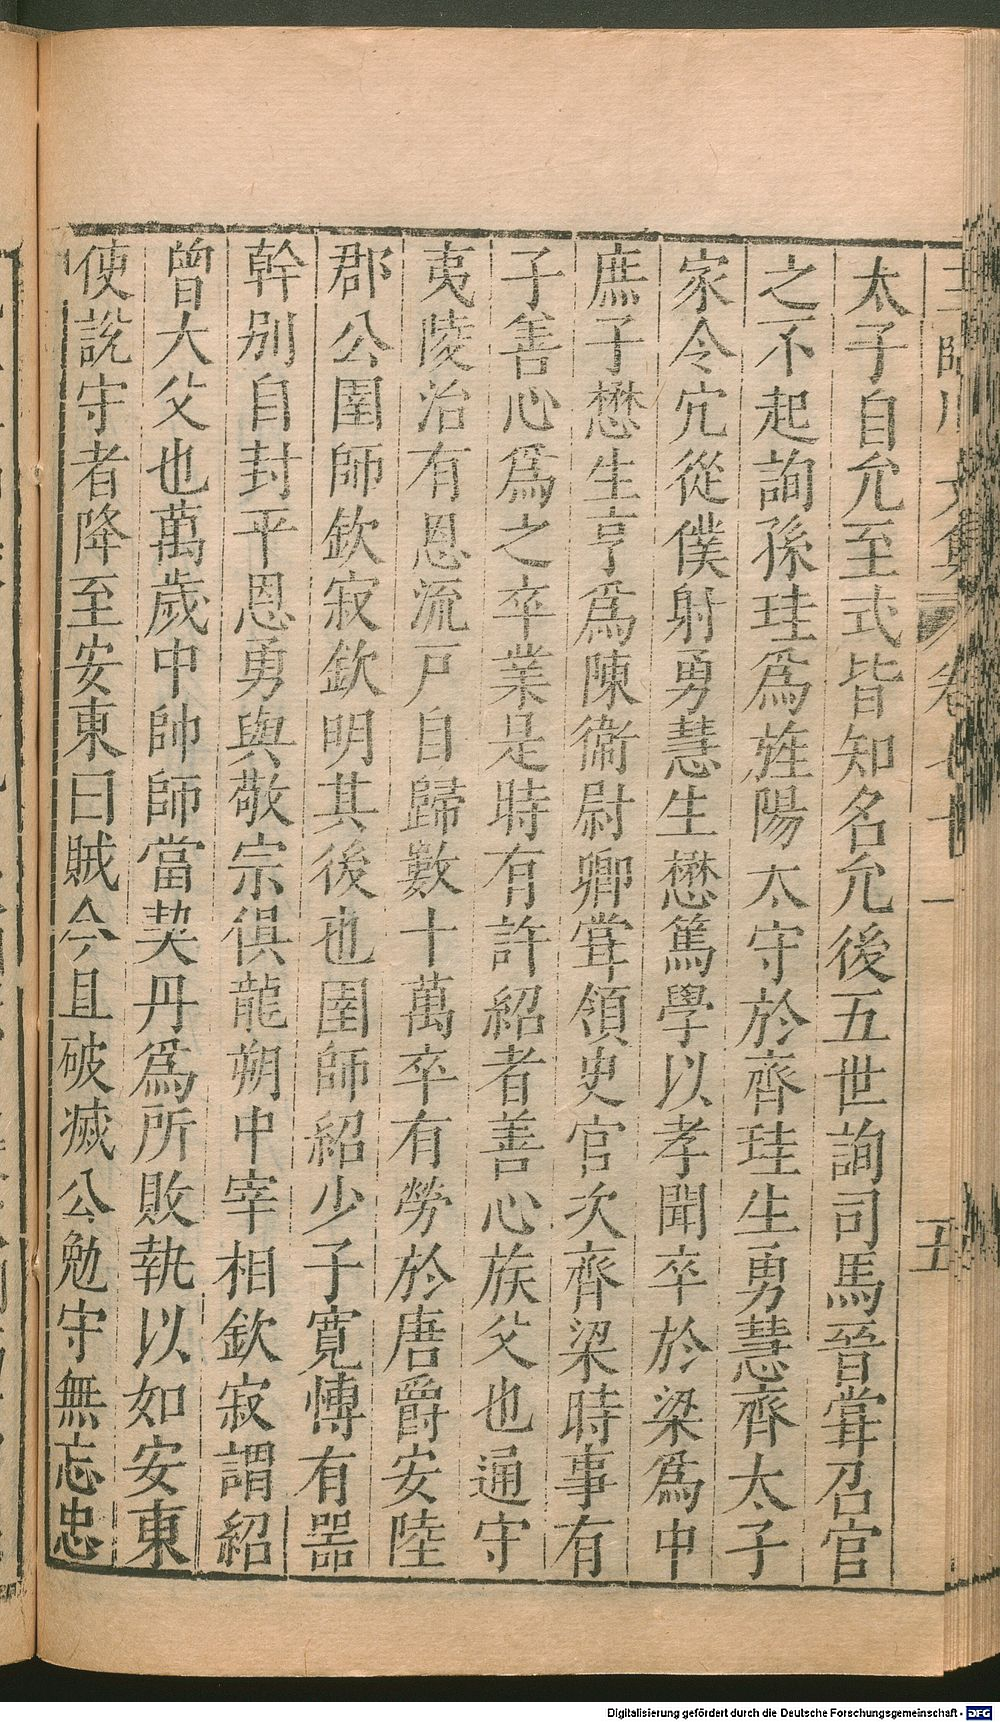 王臨川文集 卷七十一 五
太子自允至式皆知名允後五世詢司馬晉甞召官
之不起詢孫珪爲旌陽太守於齊珪生勇慧齊太子
家令宂從僕射勇慧生懋篤學以孝聞卒於梁爲中
庶子懋生亨爲陳衞尉卿甞領史官次齊梁時事有
子善心爲之卒業是時有許紹者善心族父也通守
夷陵治有恩流戸自歸數十萬卒有勞於唐爵安陸
郡公圉師欽寂欽明其後也圉師紹少子寛慱有噐
幹别自封平恩勇與敬宗俱龍朔中宰相欽寂謂紹
曾大父也萬歲中帥師當契丹爲所敗執以如安東
使說守者降至安東曰賊今且破㓕公勉守無忘忠
Digitalisierung gefördert durch die Deutsche Forschungsgemeinschaft - DFG